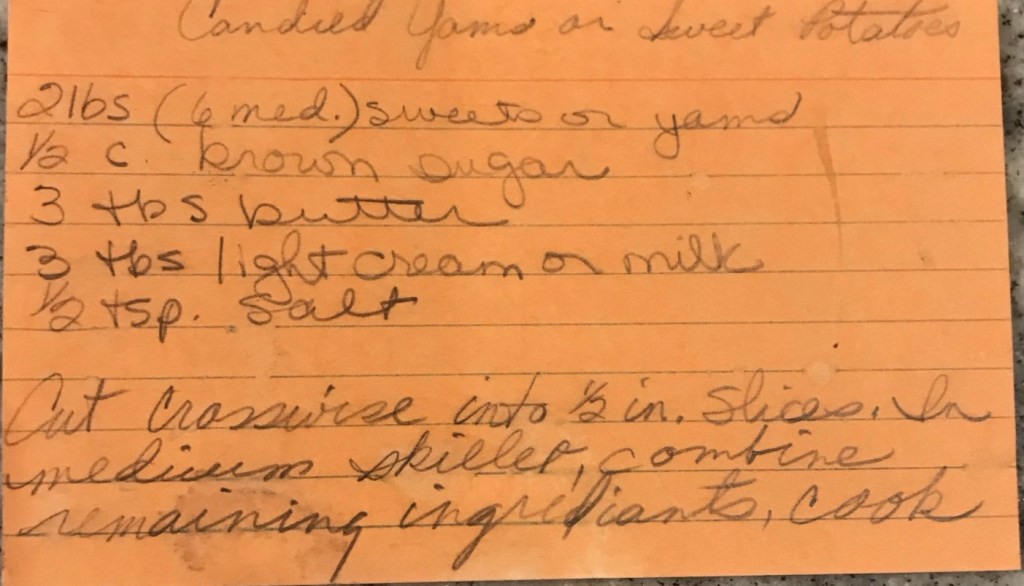 Candied Yams or Sweet Potatoes
2 lbs (6 med.) sweets or yams
1/2 c. brown sugar
3 tbs butter
3 tbs light cream or milk
1/2 tsp. Salt
Cut Crosswise into 1/2 in. Slices. In
medium skillet, combine
remaining ingrediants, cook